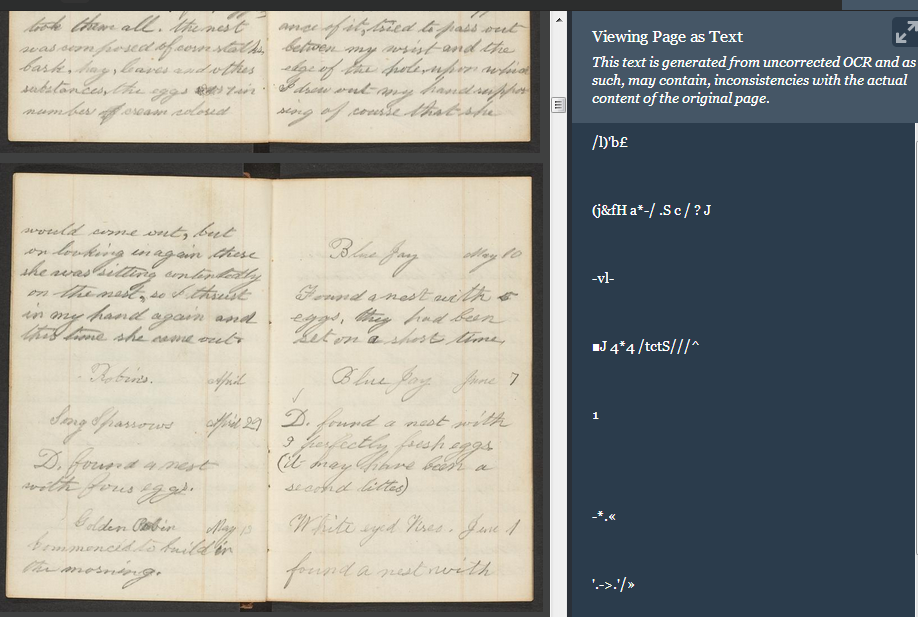 took them all. The nest
was composed of corn stalks,
bark, hay, leaves and other
substances, the eggs 7 in
number of cream colored
ance of it, tried to pass out
between my wrist and the
edge of the hole, upon which
I drew out my hand suppo
sing of course that she
would come out, but
on looking in again there
she was sitting contentedly
on the nest, so I thrust
in my hand again and
this time she came out.
Robins. April
Song Sparrows April 29
D. found a nest
with four eggs.
Golden Robin May 13
Commenced to build in
the morning.
Blue Jay May 10
Found a nest with 5
eggs, they had been
set on a short time,
Blue Jay June 7
D. found a nest with
3 perfectly fresh eggs
(it may have been a
second litter)
White eyed Vireo. June 1
found a nest with
Viewing Page as Text
This text is generated from uncorrected OCR and as
such, may contain, inconsistencies with the actual
content of the original page.
/l)'b£
(j&fH a*-/ .S c / ? J
-vl-
■J 4*4 /tctS///^
1
-*.«
'.->.'/»